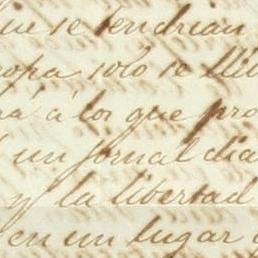 que se tendrian
ropa solo se lle
á los que pro
un jornal dia
y la libertad
en un lugar